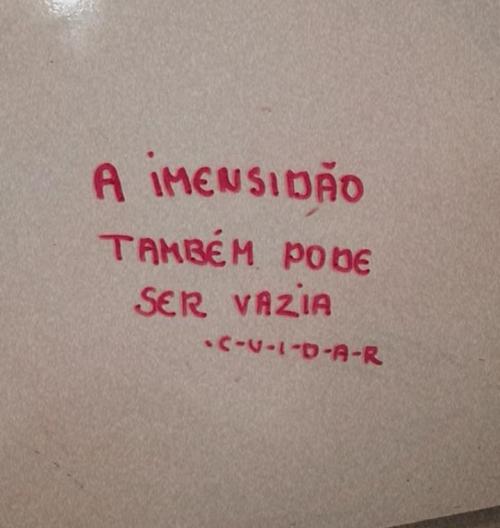 A iMENSIDÃO
TAMBÉM PODE
SER VAZiA
.C-U-I-D-A-R